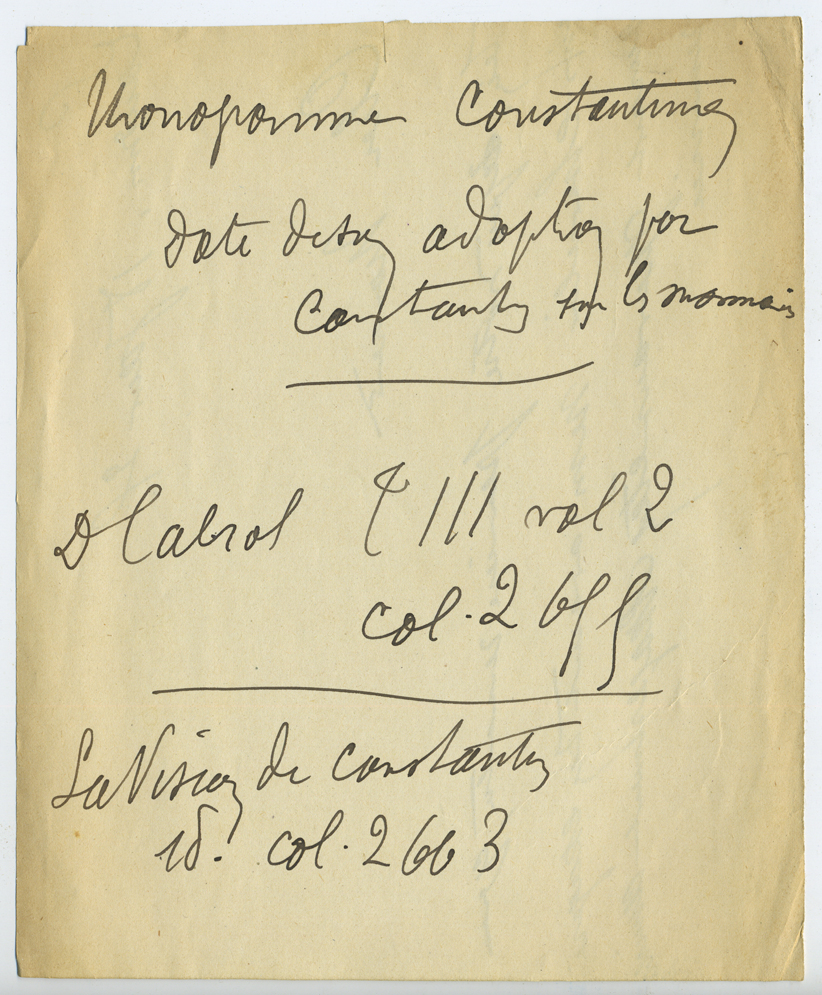 Monogramme Constantinien
Date de son adoption par
Constantin sur les monnaies
D Cabrol t III vol 2
col. 2
La Vision de Constantin
id. col. 2663